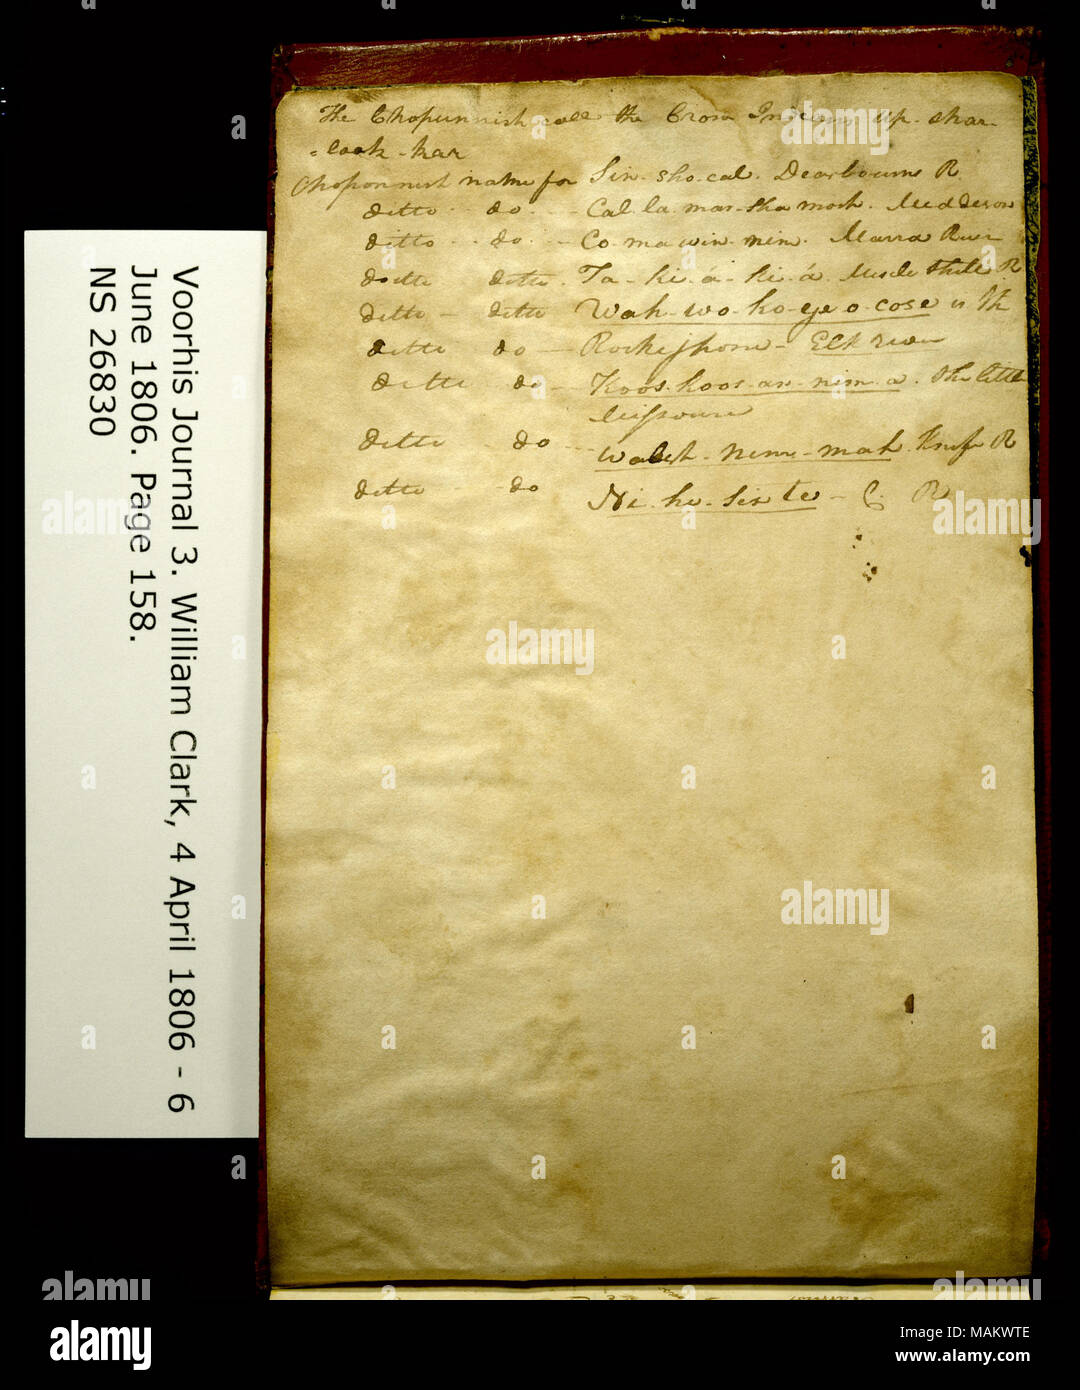 The Chopunnish call the Crow Indians up-shar-
= look-kar
Choponnish name for Sin-sho-cal. Dearbourns R.
ditto - do - Cal-la-mar-sha-mosh. Meddison
ditto - do - Co-ma-win-nim. Maria River
ditto ditto - Ta-ki-á-ki-á. Musle Shell R
ditto - ditto Wah-wo-ko-ye-o-cose is th
ditto do - Rockejhone - Elk river
ditto do - Koos-koos-an-nim-a. the little
Missouri
ditto - do - Walch-Nim-mah Knife R
ditto - do Ni-he-sir-te - C. R
Voorhis Journal 3. William Clark, 4 April 1806 - 6
June 1806. Page 158.
NS 26830
alamy
alamy
alamy
alamy
alamy
alamy
alamy
Image ID: MAKWTE
www.alamy.com